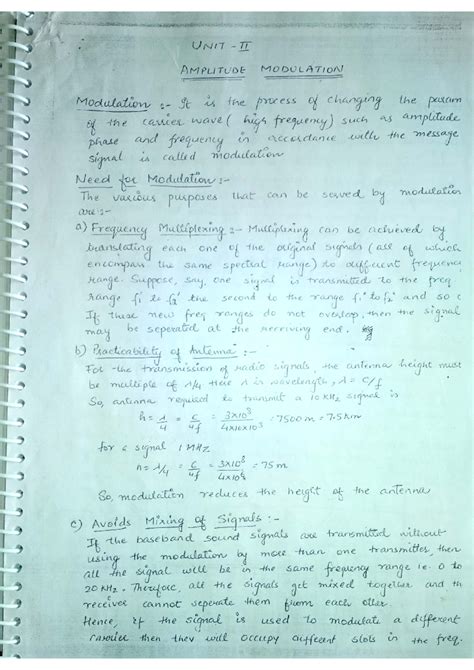 UNIT - II
AMPLITUDE MODULATION
Modulation :- It is the process of changing the param
of the carrier wave ( high frequency) such as amplitude
phase and frequency in accordance with the message
signal is called modulation
Need for Modulation :-
The various purposes that can be served by modulation
are :-
a) Frequency Multiplexing :- Multiplexing can be achieved by
translating each one of the original signals ( all of which
encompass the same spectral range) to different frequenci
range. Suppose, say, one signal is transmitted to the freq
range f₁ to f₂ the second to the range f₁' to f₂' and so
If these new freq ranges do not overlap, then the signal
may be seperated at the receiving end.
b) Practicability of Antenna :-
For the transmission of radio signals, the antenna height must
be multiple of λ/4 Here λ is wavelength, λ = C/f
So, antenna required to transmit a 10 KHz signal is
h = λ/4 = C/4f = 3×10⁸/4×10×10³ = 7500m = 7.5Km
for a signal 1 MHz
h = λ/4 = C/4f = 3×10⁸/4×10⁶ = 75m
So, modulation reduces the height of the antenna
c) Avoids Mixing of Signals :-
If the baseband sound signals are transmitted without
using the modulation by more than one transmitter, then
all the signal will be in the same frequency range i.e. 0 to
20 KHz. Therefore, all the signals get mixed together and th
receiver cannot seperate them from each other.
Hence, if the signal is used to modulate a different
carrier then they will occupy different slots in the freq.